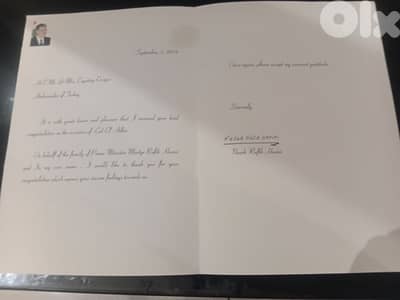 OLX
September 5, 2014
Ambassador of Turkey
It is with great honor and pleasure that I received your kind
congratulations on the occasion of Eid El Adha.
On behalf of the family of Prime Minister Martyr Rafik Hariri
and In my own name, I would like to thank you for your
congratulations which express your sincere feelings towards us.
Once again, please accept my renewed gratitude.
Sincerely,
Nazek Rafik Hariri